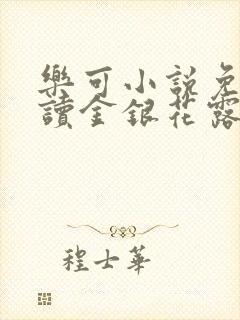 樂可小說免
讀金銀花露
程士華